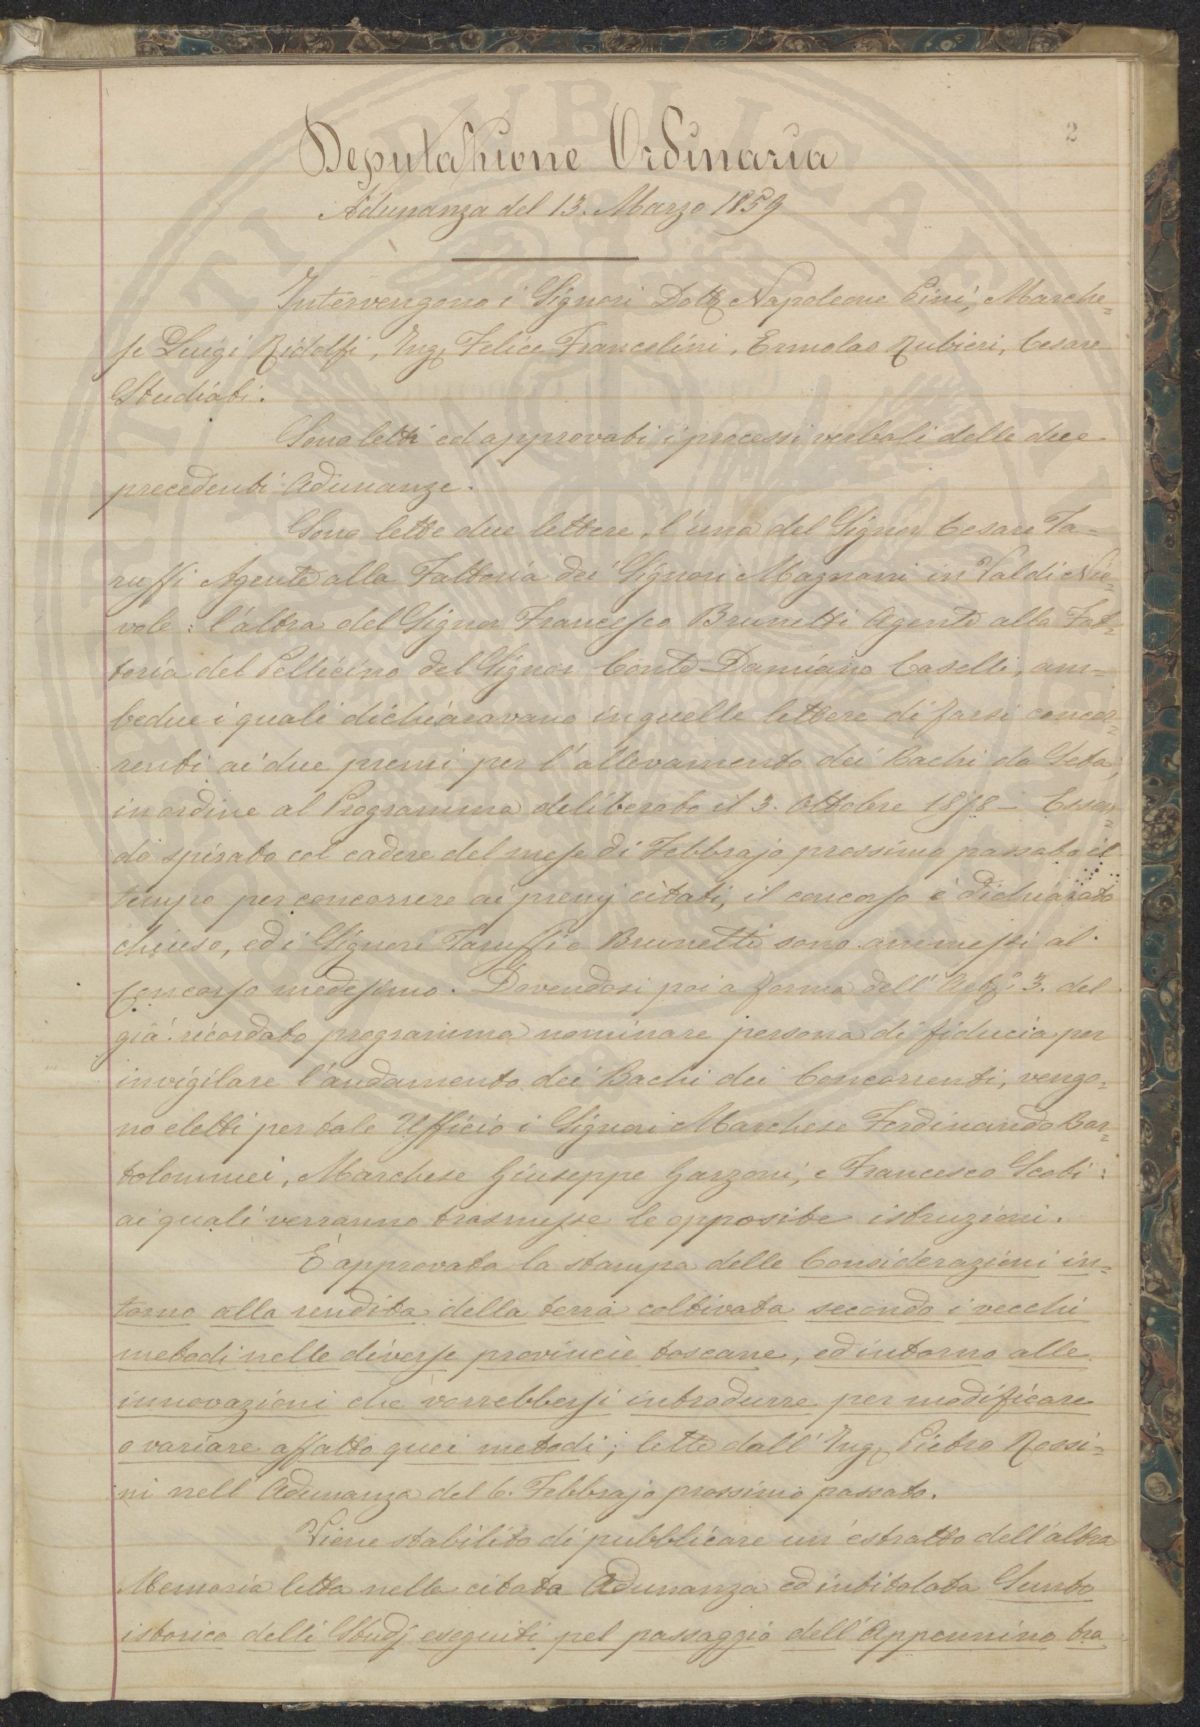 2
Deputazione Ordinaria
Adunanza del 13. Marzo 1859
Intervengono i Signori Dott. Napoleone Pini, Marche=
se Luigi Ridolfi, Ing. Felice Francolini, Ermolao Rubieri, Cesare
Studiati.
Sono letti ed approvati i processi verbali delle due
precedenti Adunanze.
Sono lette due lettere, l'una del Signor Cesare Ta=
ruffi Agente alla Fattoria dei Signori Magnani in Valdi Nie=
vole: l'altra del Signor Francesco Brunetti Agente alla Fat=
toria del Pellicino del Signor Conte Damiano Caselli, am=
bedue i quali dichiaravano in quelle lettere di farsi concor=
renti ai due premi per l'allevamento dei Bachi da Seta,
in ordine al Programma deliberato il 3. Ottobre 1858 - Essen
do spirato col cadere del mese di Febbrajo prossimo passato il
tempo per concorrere ai premj citati, il concorso è dichiarato
chiuso, ed i Signori Taruffi e Brunetti sono ammessi al
Concorso medesimo. Dovendosi poi a forma dell' Art.º 3. del
già ricordato programma nominare persona di fiducia per
invigilare l'andamento dei Bachi dei Concorrenti, vengo=
no eletti per tale Ufficio i Signori Marchese Ferdinando Bar=
tolommei, Marchese Giuseppe Garzoni, e Francesco Scoti:
ai quali verranno trasmesse le opposite istruzioni.
È approvata la stampa delle Considerazioni in=
torno alla rendita della terra coltivata secondo i vecchi
metodi nelle diverse provincie toscane, ed intorno alle
innovazioni che vorrebbersi introdurre per modificare
o variare affatto quei metodi; lette dall' Ing. Pietro Rossi=
ni nell' Adunanza del 6. Febbrajo prossimo passato.
Viene stabilito di pubblicare un'estratto dell'altra
Memoria letta nella citata Adunanza ed intitolata Sunto
istorico delli Studj eseguiti pel passaggio dell'Appennino tra